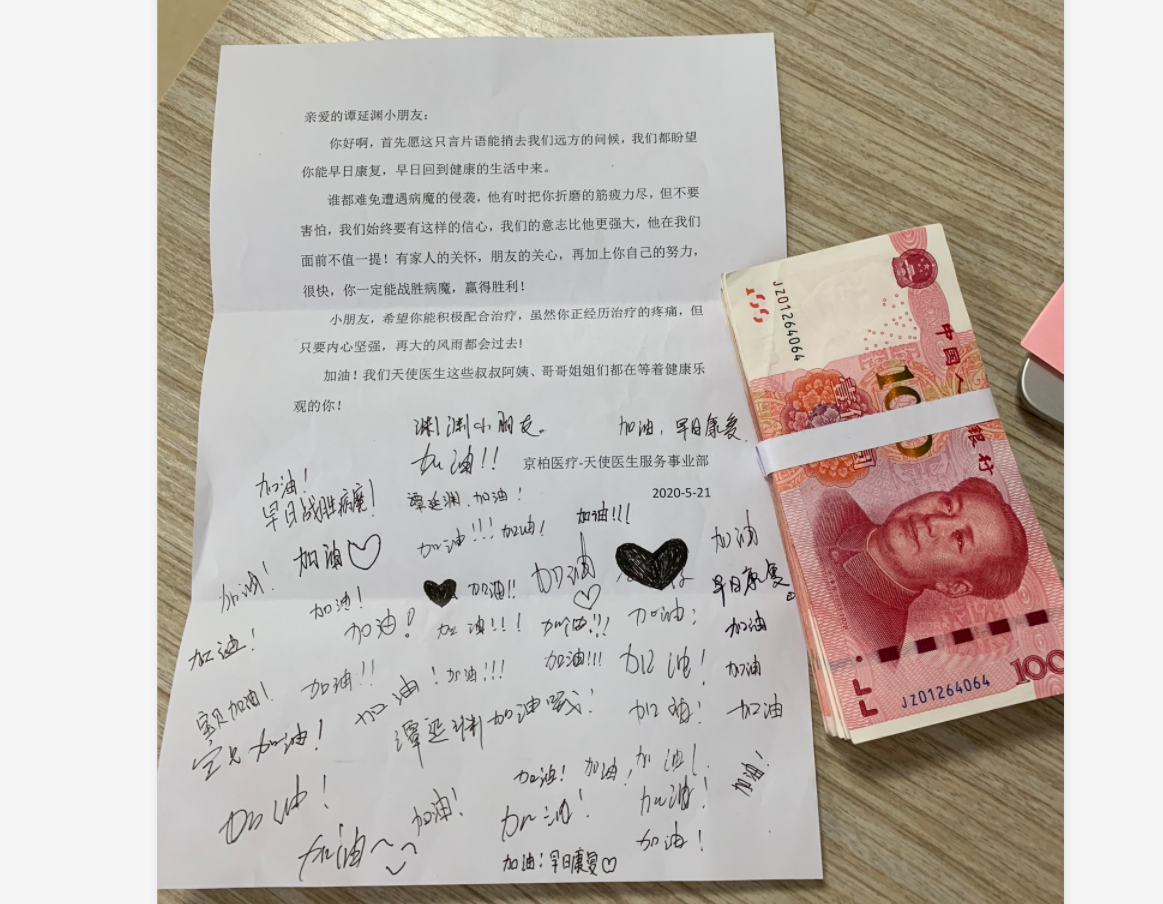 亲爱的谭延渊小朋友：
你好啊，首先愿这只言片语能捎去我们远方的问候，我们都盼望
你能早日康复，早日回到健康的生活中来。
谁都难免遭遇病魔的侵袭，他有时把你折磨的筋疲力尽，但不要
害怕，我们始终要有这样的信心，我们的意志比他更强大，他在我们
面前不值一提！有家人的关怀，朋友的关心，再加上你自己的努力，
很快，你一定能战胜病魔，赢得胜利！
小朋友，希望你能积极配合治疗，虽然你正经历治疗的疼痛，但
只要内心坚强，再大的风雨都会过去！
加油！我们天使医生这些叔叔阿姨、哥哥姐姐们都在等着健康乐
观的你！
渊渊小朋友。
加油!!
加油，早日康复
京柏医疗-天使医生服务事业部
2020-5-21
加油！
早日战胜病魔！
谭延渊，加油！
加油!!!
加油!!!
加油！
加油
加油
早日康复
加油！
加油！
加油!!
加油
加油！
加油？
加油!!!
加油!!!
加油；
加油
加油！
加油!!
加油！
加油!!!
加油!!!
加油！
加油
宝贝加油！
谭延渊加油哦！
加油！
加油
加油！
加油！
加油！
加油，
加油！
加油！
加油！
加油！
加油
加油！
加油！
加油！早日康复
JZ01264064
中国人
银行
100
壹佰圆
JZ01264064
100